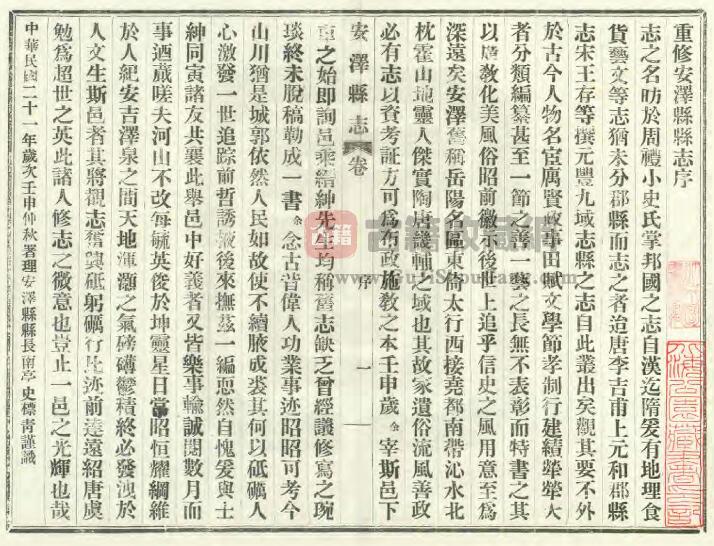 重修安澤縣縣志序
志之名昉於周禮小史氏掌邦國之志自漢迄隋爰有地理食
貨藝文等志猶未分郡縣而志之者迨唐李吉甫上元和郡縣
志宋王存等撰元豐九域志縣之志自此叢出矣觀其要不外
於古今人物名宦厲賢政事田賦文學節孝制行建績犖犖大
者分類編纂甚至一節之善一藝之長無不表彰而特書之其
以敦化美風俗昭前徽示後世上追乎信史之風用意至爲
深遠矣安澤舊稱岳陽名區東倚太行西接堯都南帶沁水北
枕霍山地靈人傑實陶唐畿輔之域也其故家遺俗流風善政
必有志以資考証方可爲布政施敎之本壬申歲余宰斯邑下
安澤縣志 卷 序 一
車之始即詢邑乘縉紳先生均稱舊志缺乏曾經議修寫之琬
琰終未脫稿勒成一書余念古昔偉人功業事迹昭昭可考今
山川猶是城郭依然人民如故使不續腋成裘其何以砥礪人
心激發一世追踪前哲誘掖後來撫茲一編恧然自愧爰與士
紳同寅諸友共襄此舉邑中好義者又皆樂事輸誠閱數月而
事遒歲嗟夫河山不改每毓英俊於坤靈星日當昭恒耀綱維
於人紀安吉澤泉之間天地渾灝之氣磅礴鬱積終必發洩於
人文生斯邑者其將觀志奮興砥躬礪行比迹前達遠紹唐虞
勉爲超世之英此諸人修志之微意也豈止一邑之光輝也哉
中華民國二十一年歲次壬申仲秋署理安澤縣縣長南亭史標青謹識
古籍
古籍收藏网
www.GuJiShouCang.com